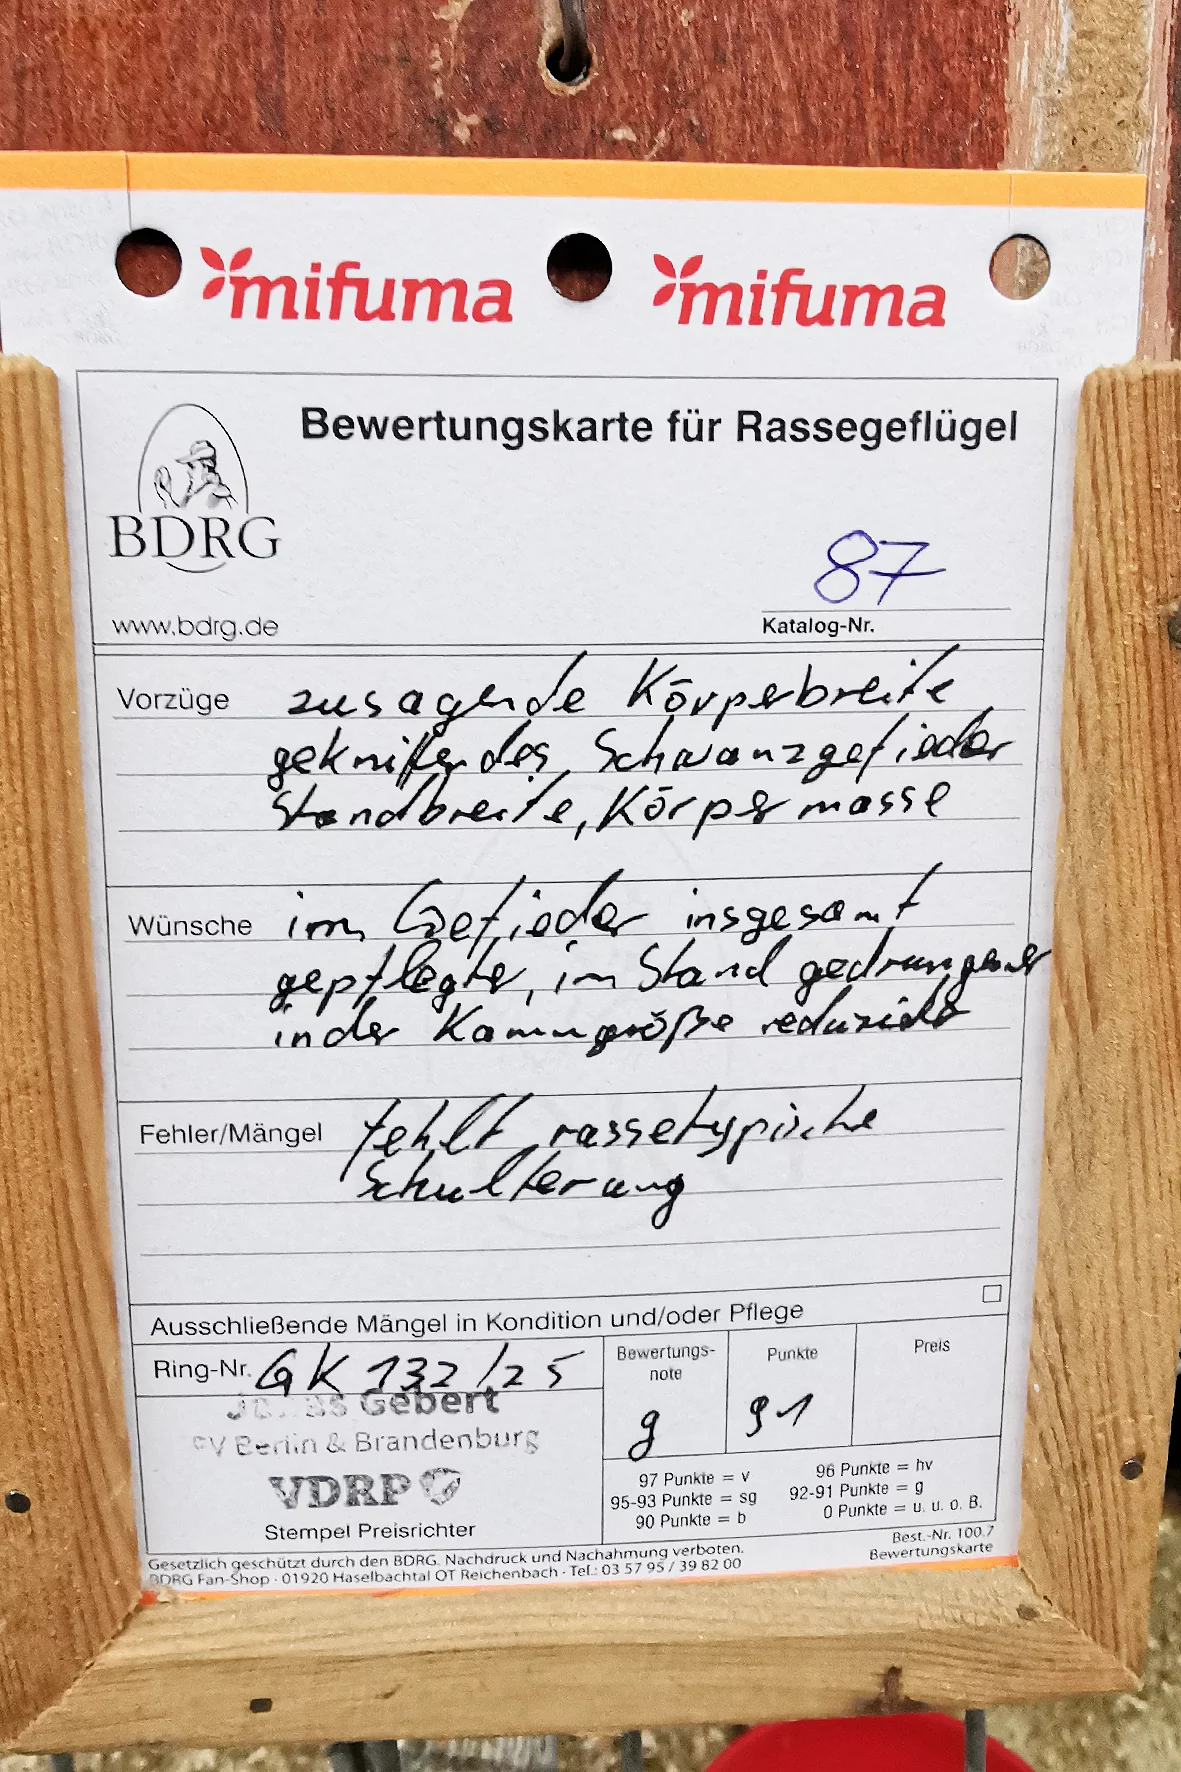 mifuma mifuma
Bewertungskarte für Rassegeflügel
BDRG
www.bdrg.de
87
Katalog-Nr.
Vorzüge zusagende Körperbreite
gekniffendes Schwanzgefieder
Standbreite, Körpermasse
Wünsche im Gefieder insgesamt
gepflegter, im Stand gedrungener
in der Kammgröße reduzierter
Fehler/Mängel fehlt rassetypische
Schulterung
Ausschließende Mängel in Kondition und/oder Pflege
Ring-Nr. GK 132/25
Bewertungs-
note
g
Punkte
91
Preis
Gebert
Berlin & Brandenburg
VDRP
Stempel Preisrichter
97 Punkte = v 96 Punkte = hv
95-93 Punkte = sg 92-91 Punkte = g
90 Punkte = b 0 Punkte = u. u. o. B.
Gesetzlich geschützt durch den BDRG. Nachdruck und Nachahmung verboten.
BDRG Fan-Shop · 01920 Haselbachtal OT Reichenbach · Tel.: 03 57 95 / 39 82 00
Best.-Nr. 100.7
Bewertungskarte